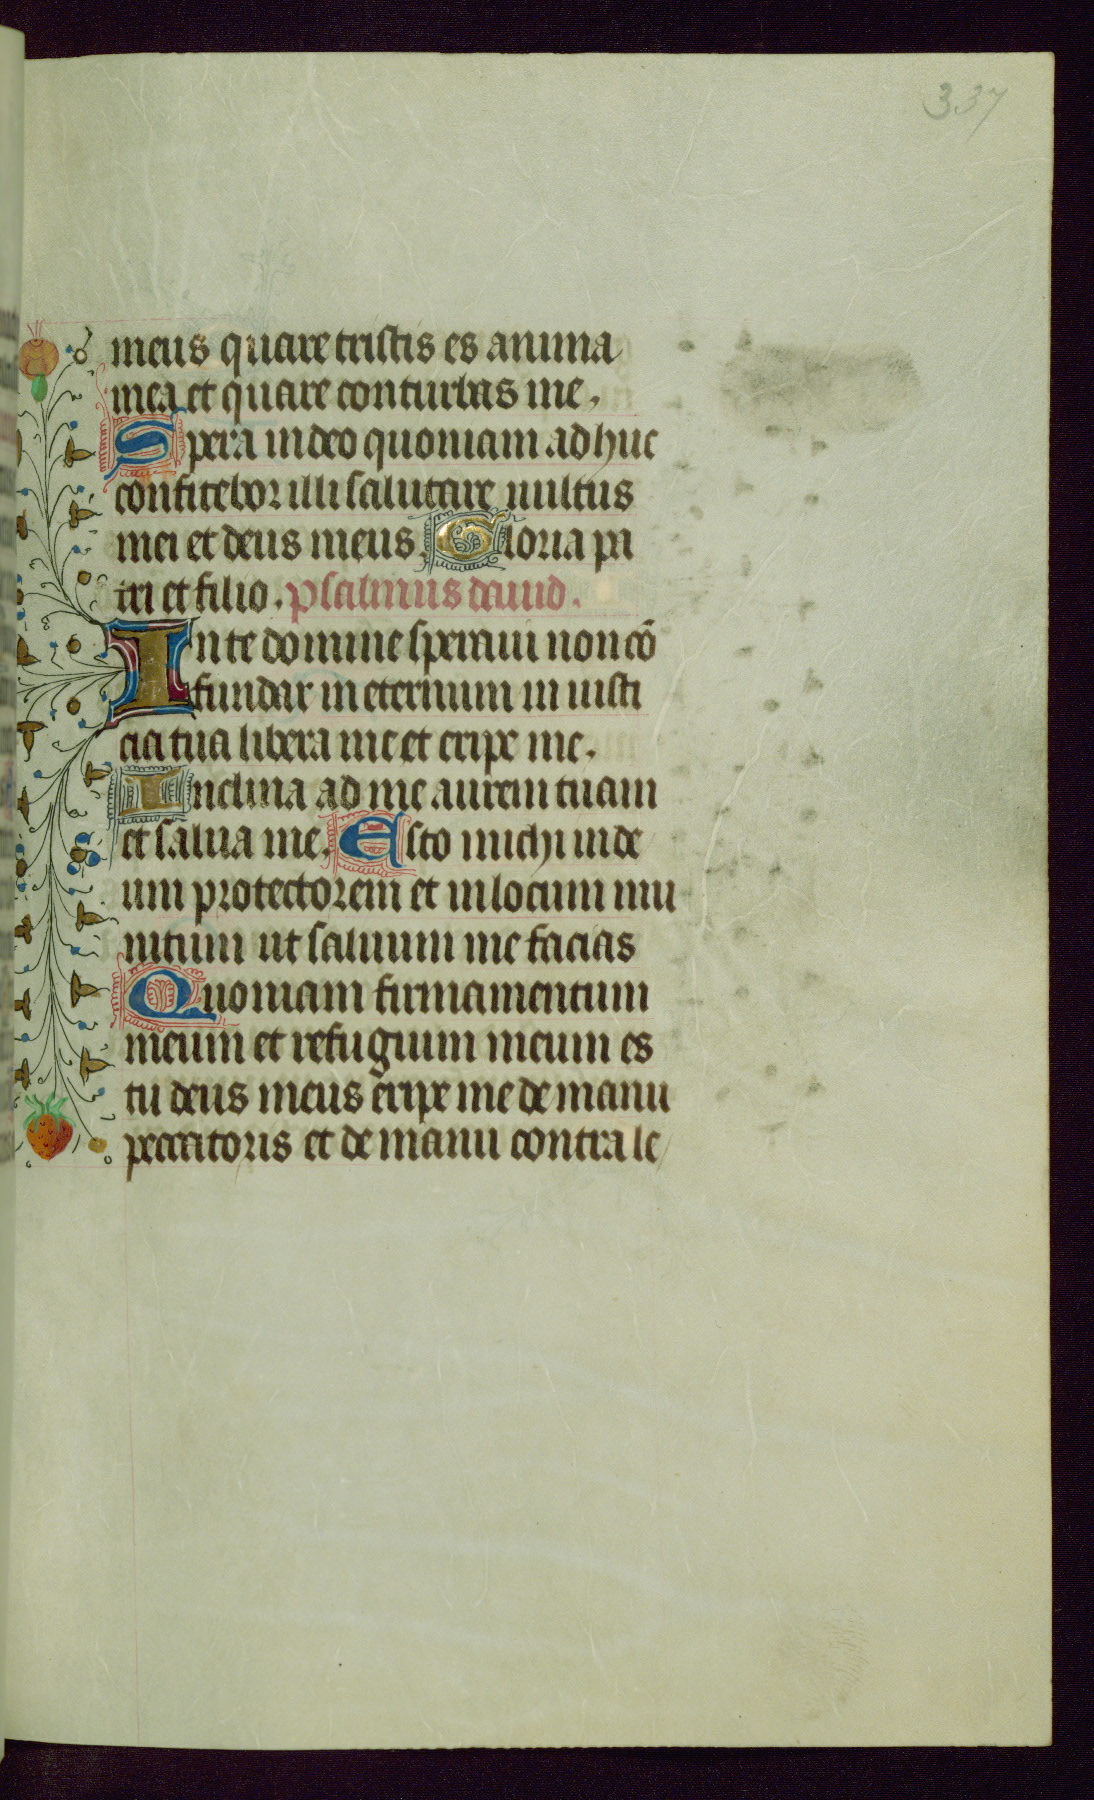 337
meus quare tristis es anima
mea et quare conturbas me.
Spera in deo quoniam adhuc
confitebor illi salutare uultus
mei et deus meus. Gloria pa
tri et filio. psalmus dauid.
In te domine speraui non cō
fundar in eternum in iusti
cia tua libera me et eripe me.
Inclina ad me aurem tuam
et salua me. Esto michi in de
um protectorem et in locum mu
nitum ut saluum me facias
Quoniam firmamentum
meum et refugium meum es
tu deus meus eripe me de manu
peccatoris et de manu contra le